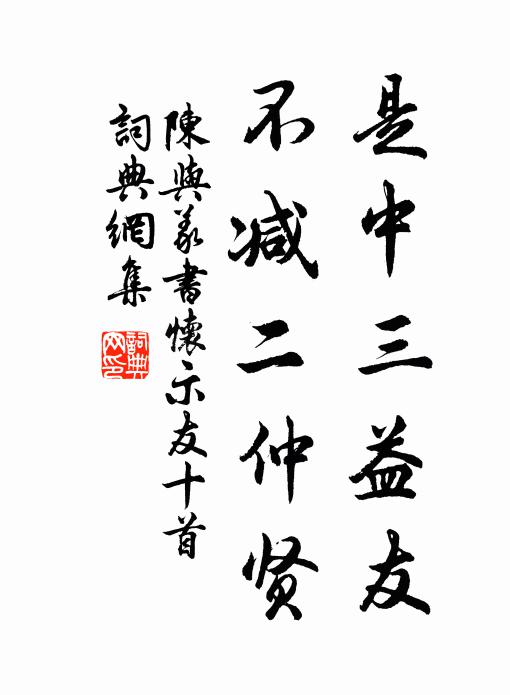 是中三益友
不减二仲贤
陳與義書懷示友十首
詞典網集
詞典網印